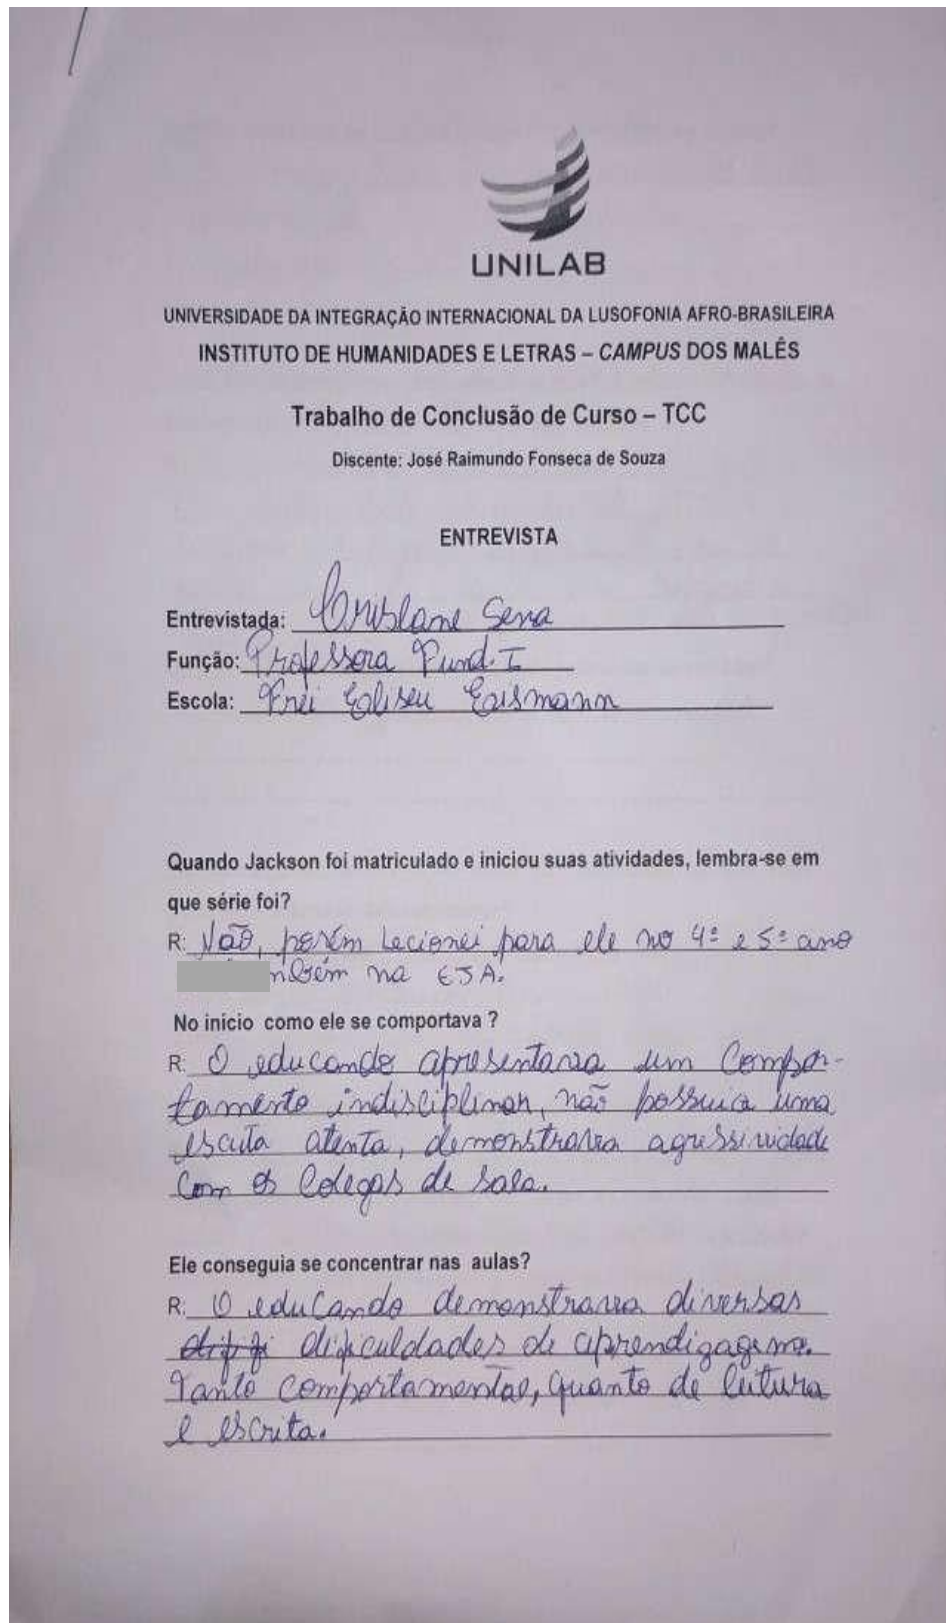 UNILAB
UNIVERSIDADE DA INTEGRAÇÃO INTERNACIONAL DA LUSOFONIA AFRO-BRASILEIRA
INSTITUTO DE HUMANIDADES E LETRAS – CAMPUS DOS MALÊS
Trabalho de Conclusão de Curso – TCC
Discente: José Raimundo Fonseca de Souza
ENTREVISTA
Entrevistada: Crislane Sena
Função: Professora Fund. I
Escola: Frei Eliseu Eismann
Quando Jackson foi matriculado e iniciou suas atividades, lembra-se em
que série foi?
R: Não, porém Lecionei para ele no 4º e 5º ano
na EJA.
No início como ele se comportava ?
R: O educando apresentava um Compor-
tamento indisciplinar, não possuia uma
escuta atenta, demonstrava agressividade
com os colegas de sala.
Ele conseguia se concentrar nas aulas?
R: O educando demonstrava diversas
dificuldades de aprendizagem.
Tanto comportamental, quanto de leitura
e escrita.